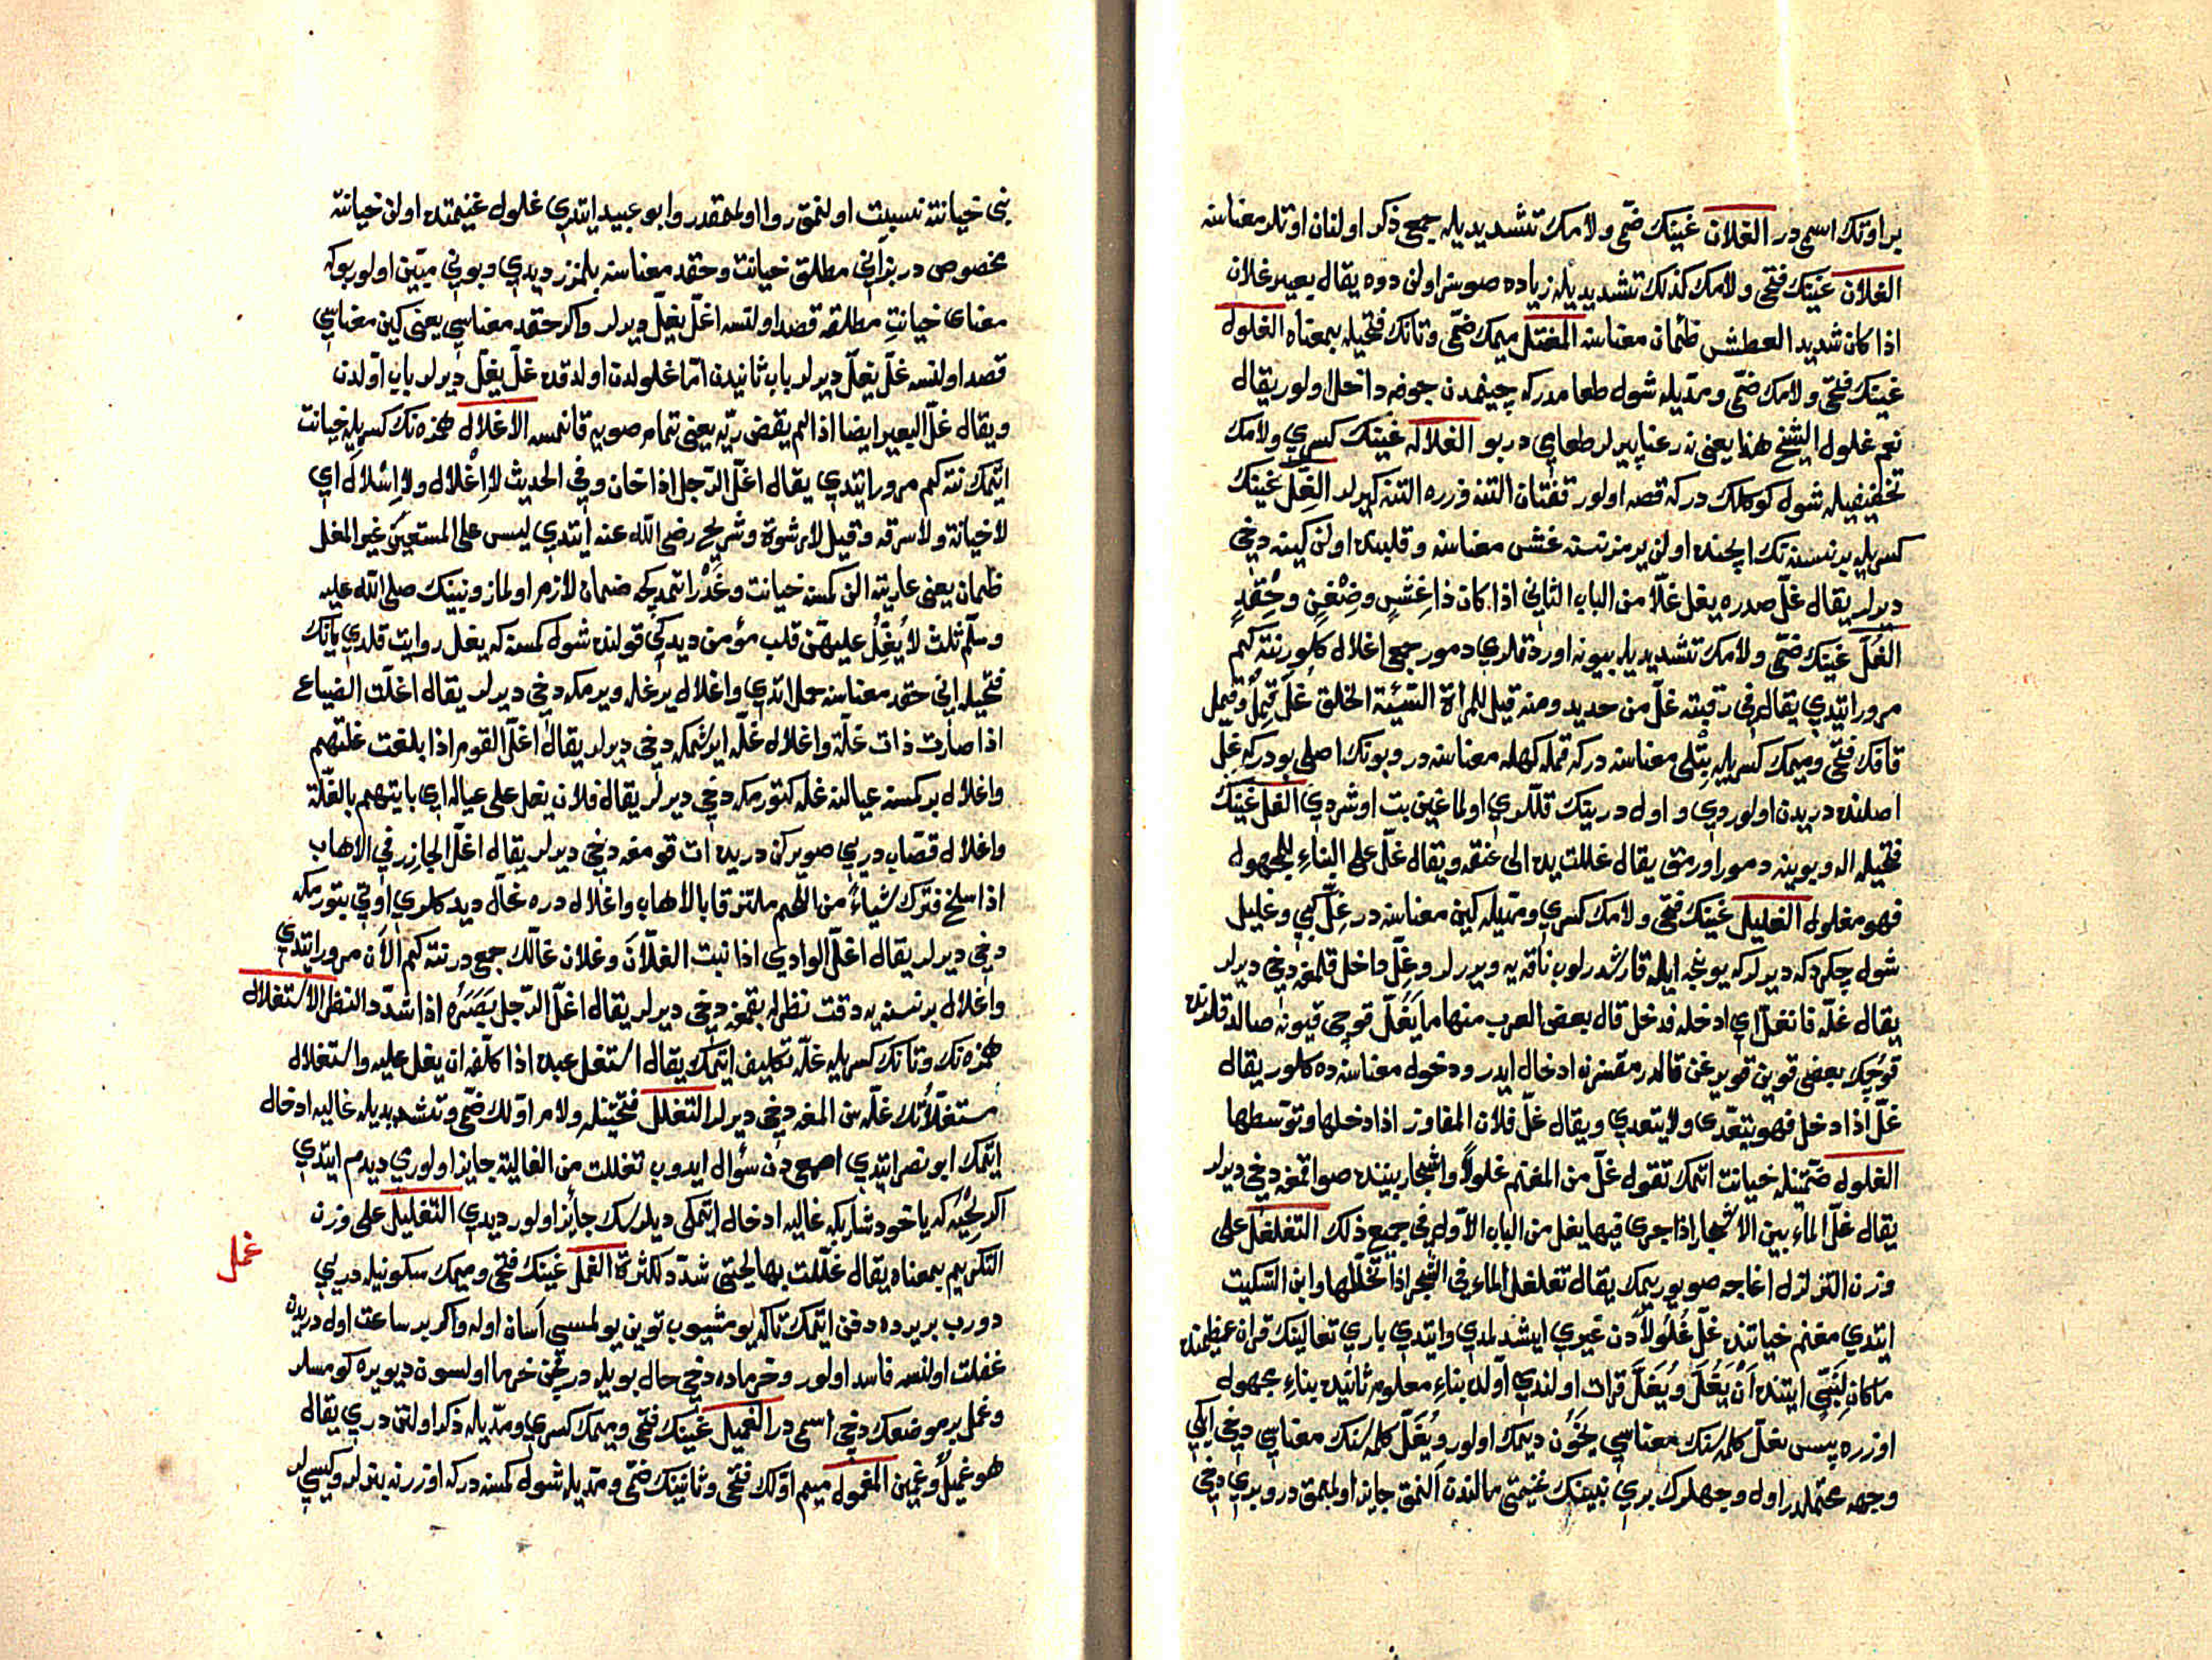 بر اوتك اسمى در الغلان غينك ضمّى و لامك تشديديله جمع ذكر اولنان اوتلر معناسنه
الغلان غينك فتحى و لامك كذلك تشديديله زياده صوسز اولن دوه يقال بعير غلان
اذا كان شديد العطش ظمآن معناسنه المغتل ميمك ضمّى و تانك فتحيله بمعناه الغلول
غينك فتحى و لامك ضمّى و مدّيله شول طعامدركه چيغندن جوفه داخل اولور يقال
نعم غلول الشيخ هذا يعنى نه رعنا پيرلر طعامى در بو الغلاله غينك كسرى و لامك
تخفيفيله شول كوكلك دركه قصه اولور قفتان التنه و زره التنه كيرلر الغلّ غينك
كسريله بر نسنه نك ايچنده اولن يرمز نسنه غش معناسنه و قلبده اولن كينه دخى
ديرلر يقال غلّ صدره يغل غلّا من الباب الثانى اذا كان ذا غِشٍ و ضِغْنٍ و حِقْدٍ
الغُلّ غينك ضمّى و لامك تشديديله بيونه اوردقلرى دمور جمع اغلال كلور نته كم
مرور ايتدى يقال فى رقبته غلّ من حديد و منه قيل للمرأة السّيّئة الخلق غُلّ قَمِلٌ و قمل
قافك فتحى و ميمك كسريله بتلى معناسنه دركه قمله كهله معناسنه در و بونك اصلى بودركه غل
اصلنده دريدن اولوردى و اول درينك قللرى اولماغين بت اوشردى الغل غينك
فتحيله اله و بوينه دمور اورمق يقال غللت يده الى عنقه و يقال غلّ على البناء للمجهول
فهو مغلول الغليل غينك فتحى و لامك كسرى و مدّيله كين معناسنه در غِلّ كبى و غليل
شول چكردكه ديرلركه يونجه ايله قارشدرلوب ناقه يه ويررلر و غِلّ داخل قلمغه دخى ديرلر
يقال غلّه فانغلّ اى ادخله فدخل قال بعض العرب منها ما يَغُلّ قوچى قيونه صالدقلرنده
قوچك بعضى قوين قويرغن قالدرمقسزنه ادخال ايدر و دخول معناسنه ده كلور يقال
غلّ اذا دخل فهو يتعدّى و لا يتعدى و يقال غلّ فلان المفاوز اذا دخلها و توسطها
الغلول ضمّتينله خيانت اتمك تقول غلّ من المغنم غلولاً و اشجار بيننده صو اقمغه دخى ديرلر
يقال غلّ الماء بين الاشجار اذا جرى فيها يغل من الباب الاوّل فى جميع ذلك التغلغل على
وزن التزلزل اغاجه صو يوريمك يقال تغلغل الماء فى الشجر اذا تخلّلها و ابن السّكيت
ايتدى مغنم خياتنده غلّ غُلُولاً دن غيرى ايشدلمدى و ايتدى بارى تعالينك قرآن عظيمنده
ما كان لِنَبِيٍّ ايتنده اَنْ يَغُلَّ و يُغَلَّ قرات اولندى اوّلده بناء معلوم ثانيده بناء مجهول
اوزره پس يغلّ كلمه سنك معناسى يَخُون ديمك اولور و يُغَلّ كلمه سنك معناسى دخى ايكى
وجهه محتملدر اول وجهلرك برى نبينك غنيمتى مالندن النمق جايز اولمامق در و برى دخى
نبى خيانته نسبت اولنمق روا اولمقدر و ابو عبيد ايتدى غلول غنيمتده اولن خيانته
مخصوص در بز آنى مطلق خيانت و حقد معناسنه بلمزز ديدى و بونى مبيّن اولور بوكه
معناى خيانتِ مطلقه قصد اولنسه اغلّ يغلّ ديرلر و اكر حقد معناسى يعنى كين معناسى
قصد اولنسه غلّ يغلّ ديرلر باب ثانيدن امّا غلولدن اولدقده غلّ يغلّ ديرلر باب اوّلدن
و يقال غلّ البعير ايضا اذا لم يقض ريّه يعنى تمام صويه قانمسه الاغلال همزه نك كسريله خيانت
ايتمك نته كم مرور ايتدى يقال اغلّ الرّجل اذا خان و فى الحديث لا اِغْلال و لا اِسْلال اَى
لا خيانة و لا سرقه و قيل لا رشوة و شريح رضى الله عنه ايتدى ليس على المستعير غير المغل
ظمان يعنى عاريته الن كمسنه خيانت و غَدْر اتمديكجه ضمان لازم اولماز و نبينك صلى الله عليه
و سلّم ثلث لا يُغِلُّ عليهنّ قلب مؤمن ديدكى قولنده شول كمسنه كه يغل روايت قلدى يانك
فتحيله انى حقد معناسنه حمل اتدى و اغلال ير غله ويرمكه دخى ديرلر يقال اغلّت الضياع
اذا صارت ذات غلّة و اغلال غلّه ايرشمكه دخى ديرلر يقال اغلّ القوم اذا بلغت غلّتهم
و اغلال بر كمسنه عيالنه غله كتورمكه دخى ديرلر يقال فلان يغل على عياله اى ياتيهم بالغلّة
و اغلال قصّاب درى صويركن دريده ات قومغه دخى ديرلر يقال اغلّ الجازر فى الاهاب
اذا سلخ فترك شياءً من اللحم ملتزقا بالاهاب و اغلال دره غالّ ديدكلرى اوتى بتورمكه
دخى ديرلر يقال اغلّ الوادى اذا نبت الغلّانَ و غلان غالّك جمع در نته كم الآن مرور ايتدى
و اغلال بر نسنه يه دقت نظرله بقمغه دخى ديرلر يقال اغلّ الرّجل بَصَرَه اذا شدّد النظر الاستغلال
همزه نك و تانك كسريله غلّه تكليف ايتمك يقال استغل عبده اذا كلّفه ان يغل عليه و استغلال
مستغلّاتك غلّه سن المغه دخى ديرلر التغلل فتحتينله و لام اوّلك ضمّى و تشديديله غاليه ادخال
ايتمك ابو نصر ايتدى اصمعى دن سؤال ايدوب تغللت من الغالية جايز اولورمى ديدم ايتدى
اكر لِحْيَه كه يا خود شاربكه غاليه ادخال ايتمكى ديلرسك جائز اولور ديدى التغليل على وزن
التكريم بمعناه يقال غلّلت بها لحيتى شدّد للكثرة الغمل غينك فتحى و ميمك سكونيله درى يى
دورب بر يرده دفن ايتمك تاكه يومشيوب توين يولمسى آسان اوله و اكر بر ساعت اول دريدن
غفلت اولنسه فاسد اولور و خرماده دخى حال بويله در قچن خرما اولسون ديو يره كومسلر
و غمل بر موضعك دخى اسمى در الغميل غينك فتحى و ميمك كسرى و مدّيله ذكر اولنن درى يقال
هو غميلٌ و غمين المغمول ميم اوّلك فتحى و ثانينك ضمّى و مدّيله شول كمسنه دركه اوزرنه بتلر و كيسيلر
غمل